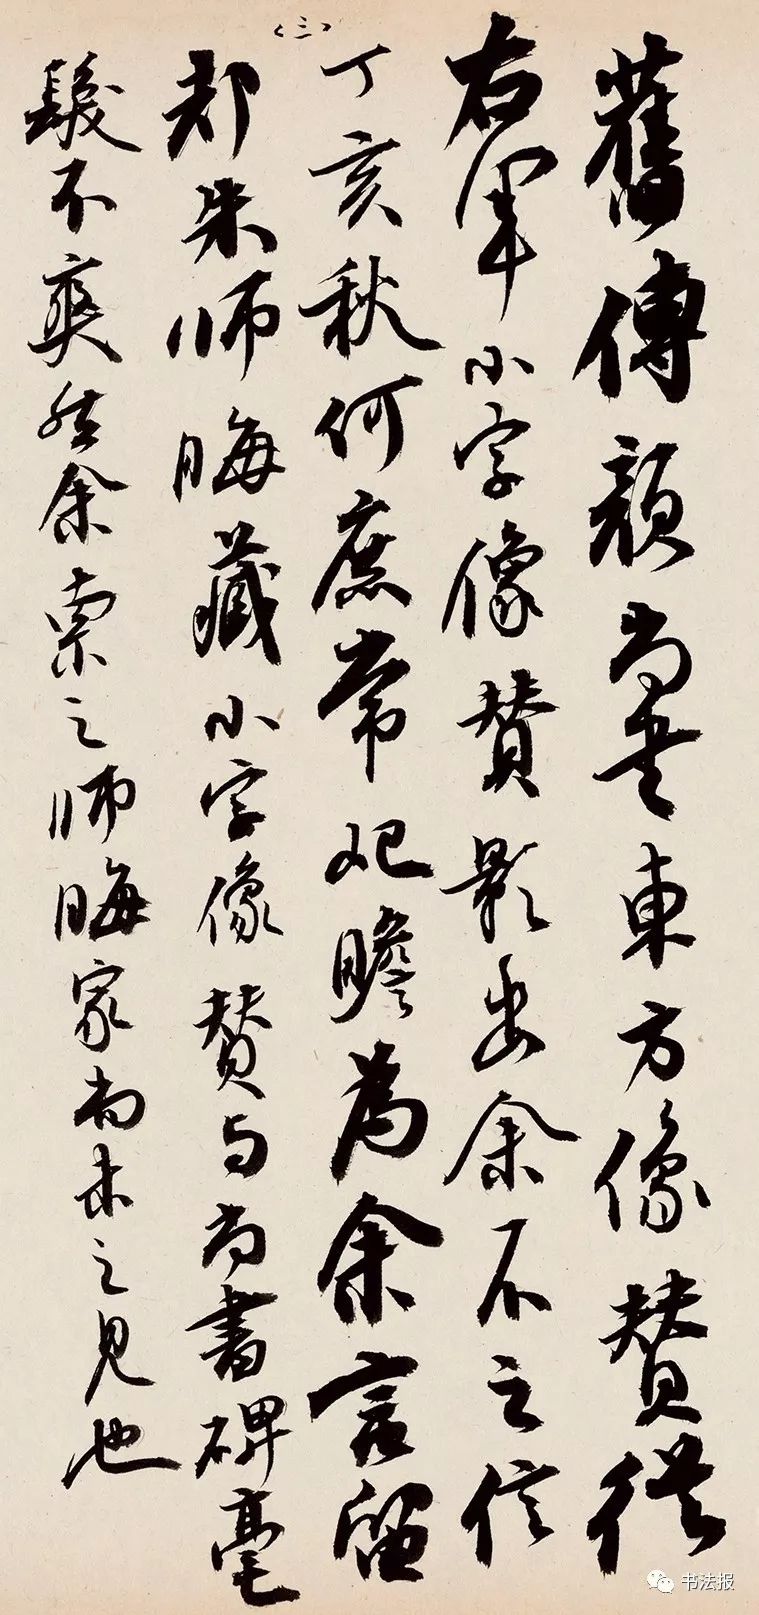 舊傳顏尚書東方像贊從
右軍小字像贊影出余不之信
丁亥秋何庶常妃瞻為余言留
都朱師晦藏小字像贊与尚書碑毫
髮不爽然余索之師晦家尚未之見也
（三）
书法报